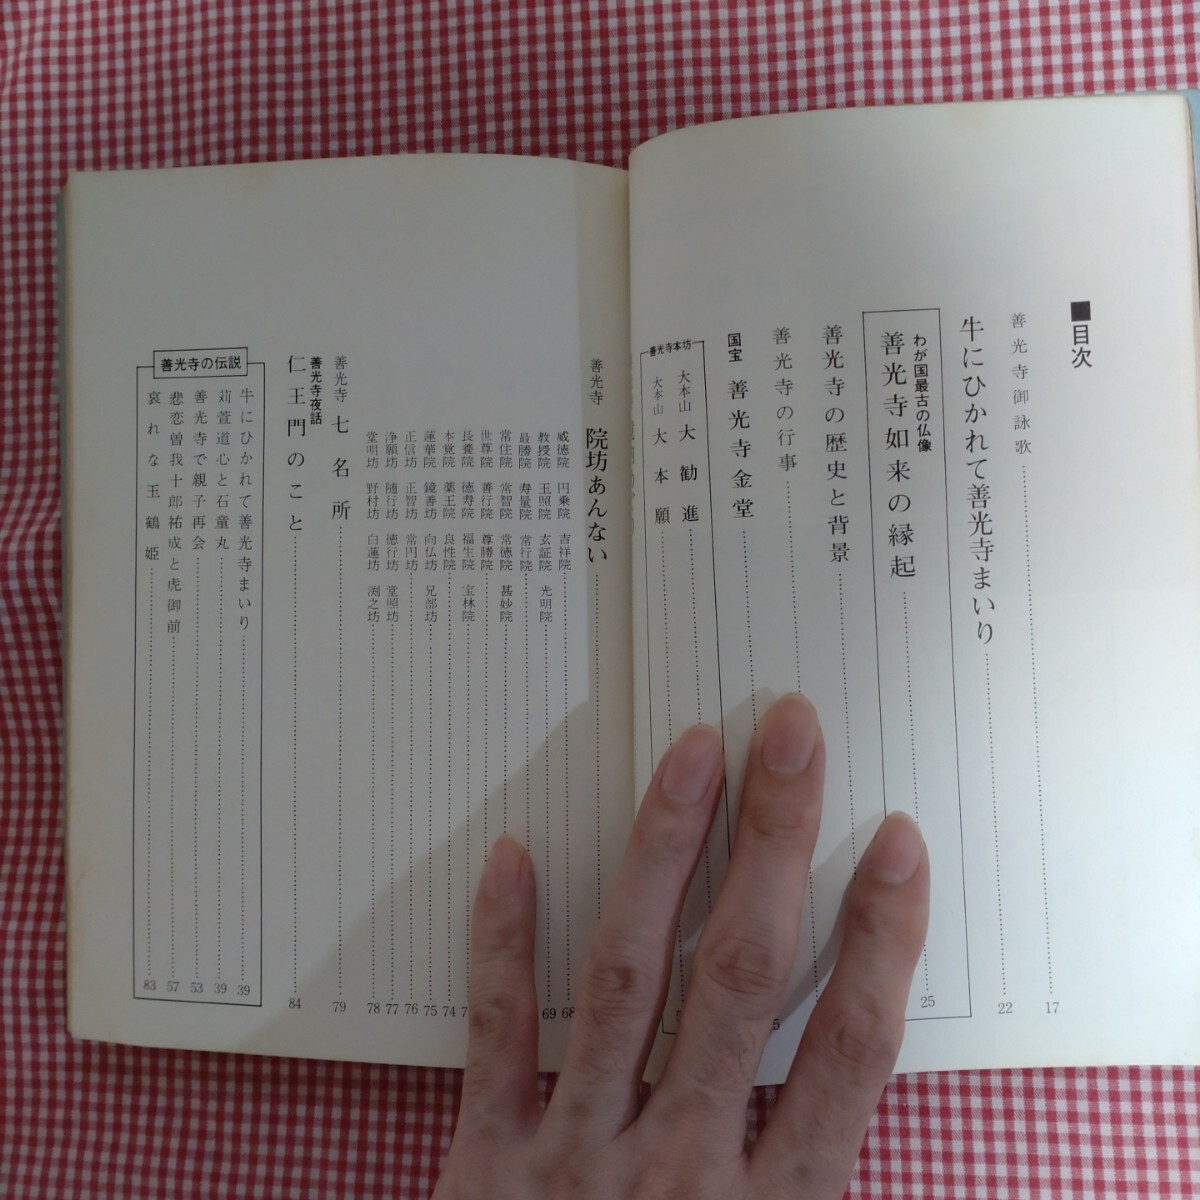 ■目次
善光寺御詠歌 17
牛にひかれて善光寺まいり 22
わが国最古の仏像
善光寺如来の縁起 25
善光寺の歴史と背景
善光寺の行事
国宝 善光寺金堂
善光寺本坊
大本山 大勧進
大本山 大本願
善光寺 院坊あんない
威徳院 円乗院 吉祥院 68
教授院 玉照院 玄証院 光明院 69
最勝院 寿量院 常行院
常住院 常智院 常徳院 甚妙院
世尊院 善行院 尊勝院
長養院 徳寿院 福生院 宝林院
本覚院 薬王院 良性院 74
蓮華院 鏡善坊 向仏坊 兄部坊 75
正信坊 正智坊 常円坊 76
浄願坊 随行坊 徳行坊 堂照坊 77
堂明坊 野村坊 白蓮坊 渕之坊 78
善光寺 七名所 79
善光寺夜話
仁王門のこと 84
善光寺の伝説
牛にひかれて善光寺まいり 39
苅萱道心と石童丸 39
善光寺で親子再会 53
悲恋曽我十郎祐成と虎御前 57
哀れな玉鶴姫 83